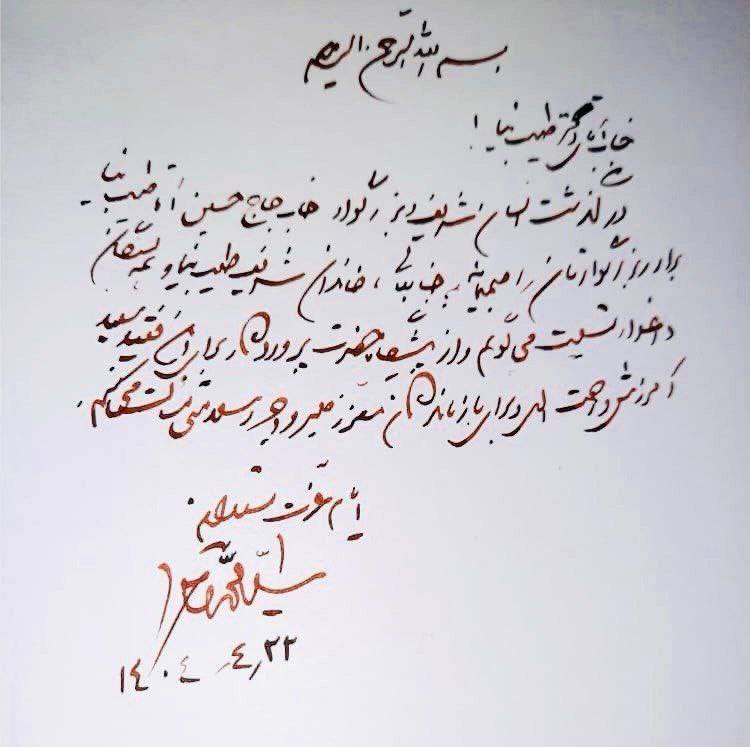 بسم الله الرحمن الرحیم
جناب آقای دکتر طبیب نیا!
درگذشت انسان شریف و بزرگوار جناب حاج حسین آقا طبیب نیا
برادر بزرگوارتان را صمیمانه به جنابعالی، خاندان شریف طبیب نیا و همه بستگان
داغدار تسلیت می گویم و از پیشگاه حضرت پروردگار برای آن فقید سعید
آمرزش و رحمت الهی و برای بازماندگان معزز صبر و اجر مسئلت می کنم.
ایام عزت مستدام
سید محمد خاتمی
۱۴۰۴ ,۴, ۲۲